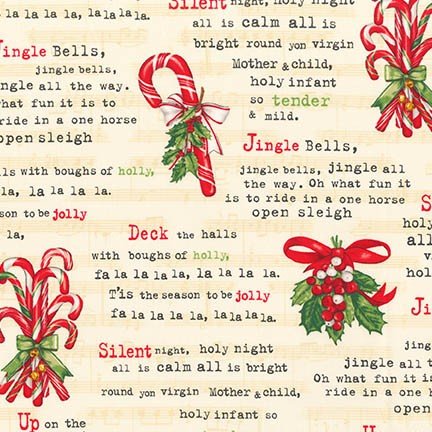 la, la la la la.
Silent night, holy night
all is calm all is
bright round yon virgin
Mother & child,
holy infant
so tender
& mild.
Jingle Bells,
jingle bells,
ngle all the way.
what fun it is to
ride in a one horse
open sleigh
Jingle Bells,
jingle bells, jingle all
the way. Oh what fun it
is to ride in a one horse
open sleigh
lls with boughs of holly,
la, la la la la.
ason to be jolly
la,
Deck the halls
with boughs of holly,
fa la la la la, la la la la.
T'is the season to be jolly
fa la la la la, la la la la.
S
holy
all
holy
Silent night, holy night
all is calm all is bright
round yon virgin Mother & child,
holy infant so
Ji
jingle
jingle all t
Oh what fun it i
ride in a one h
open
Up on the